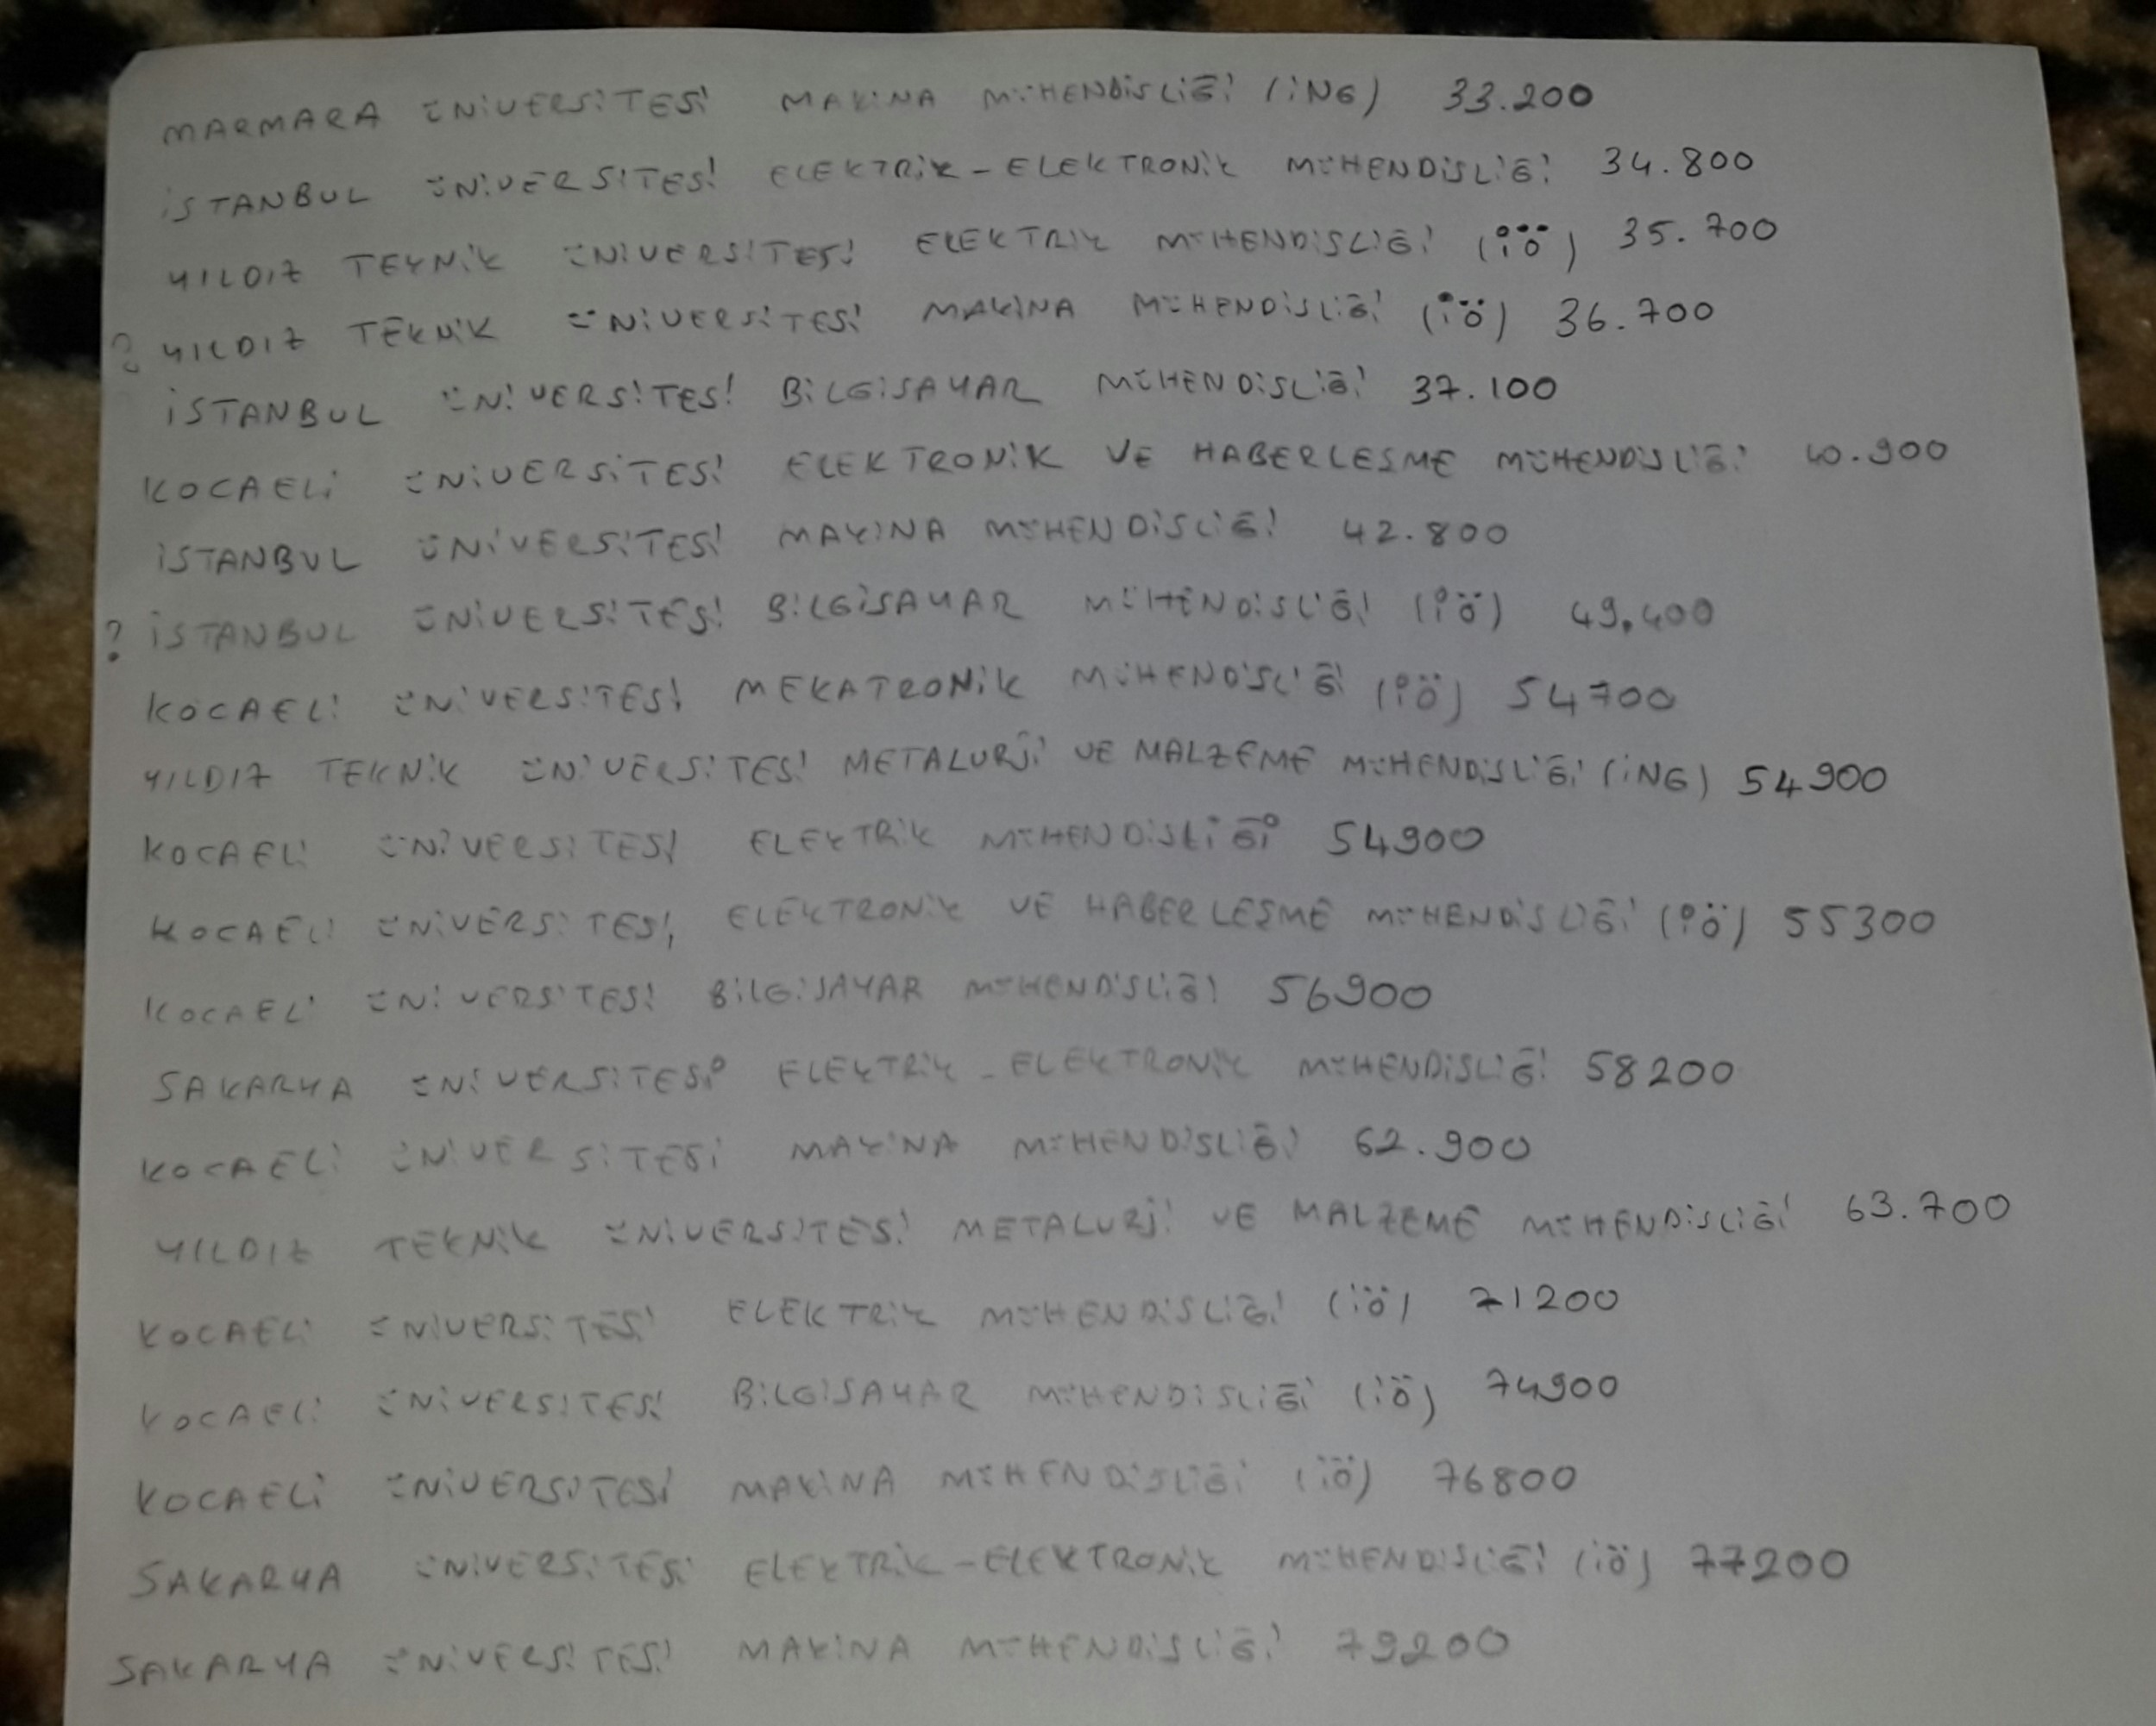 MARMARA ÜNİVERSİTESİ MAKİNA MÜHENDİSLİĞİ (İNG) 33.200
İSTANBUL ÜNİVERSİTESİ ELEKTRİK-ELEKTRONİK MÜHENDİSLİĞİ 34.800
YILDIZ TEKNİK ÜNİVERSİTESİ ELEKTRİK MÜHENDİSLİĞİ (İÖ) 35.700
? YILDIZ TEKNİK ÜNİVERSİTESİ MAKİNA MÜHENDİSLİĞİ (İÖ) 36.700
İSTANBUL ÜNİVERSİTESİ BİLGİSAYAR MÜHENDİSLİĞİ 37.100
KOCAELİ ÜNİVERSİTESİ ELEKTRONİK VE HABERLESME MÜHENDİSLİĞİ 40.900
İSTANBUL ÜNİVERSİTESİ MAKİNA MÜHENDİSLİĞİ 42.800
? İSTANBUL ÜNİVERSİTESİ BİLGİSAYAR MÜHENDİSLİĞİ (İÖ) 49.400
KOCAELİ ÜNİVERSİTESİ MEKATRONİK MÜHENDİSLİĞİ (İÖ) 54700
YILDIZ TEKNİK ÜNİVERSİTESİ METALURJİ VE MALZEME MÜHENDİSLİĞİ (İNG) 54900
KOCAELİ ÜNİVERSİTESİ ELEKTRİK MÜHENDİSLİĞİ 54900
KOCAELİ ÜNİVERSİTESİ ELEKTRONİK VE HABERLESME MÜHENDİSLİĞİ (İÖ) 55300
KOCAELİ ÜNİVERSİTESİ BİLGİSAYAR MÜHENDİSLİĞİ 56900
SAKARYA ÜNİVERSİTESİ ELEKTRİK-ELEKTRONİK MÜHENDİSLİĞİ 58200
KOCAELİ ÜNİVERSİTESİ MAKİNA MÜHENDİSLİĞİ 62.900
YILDIZ TEKNİK ÜNİVERSİTESİ METALURJİ VE MALZEME MÜHENDİSLİĞİ 63.700
KOCAELİ ÜNİVERSİTESİ ELEKTRİK MÜHENDİSLİĞİ (İÖ) 71200
KOCAELİ ÜNİVERSİTESİ BİLGİSAYAR MÜHENDİSLİĞİ (İÖ) 74900
KOCAELİ ÜNİVERSİTESİ MAKİNA MÜHENDİSLİĞİ (İÖ) 76800
SAKARYA ÜNİVERSİTESİ ELEKTRİK-ELEKTRONİK MÜHENDİSLİĞİ (İÖ) 77200
SAKARYA ÜNİVERSİTESİ MAKİNA MÜHENDİSLİĞİ 79200